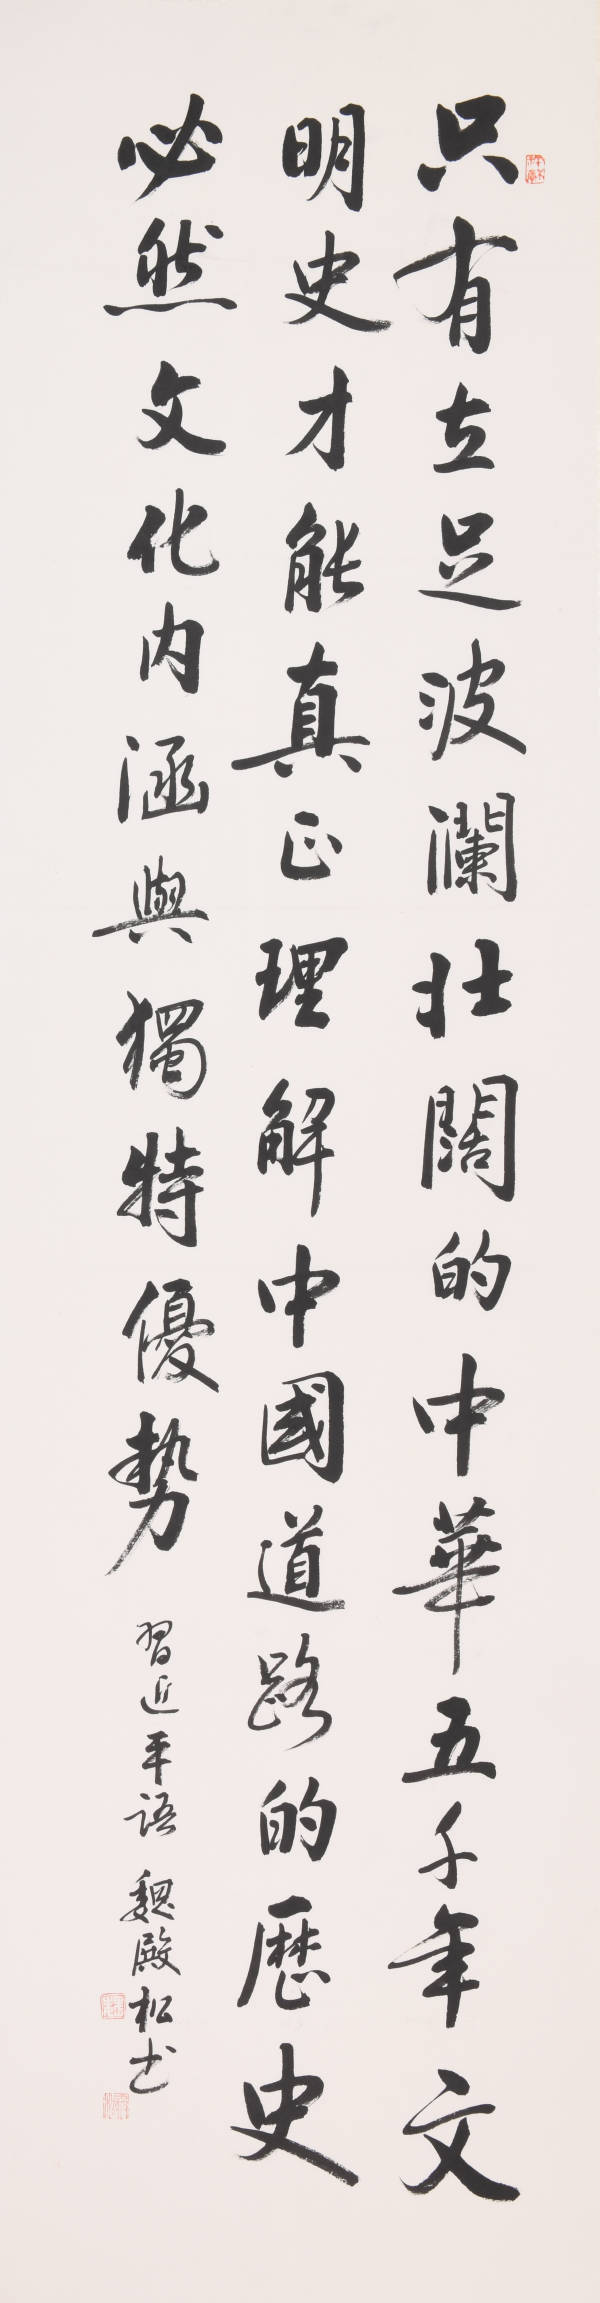 只有立足波瀾壮闊的中華五千年文
明史才能真正理解中國道路的歷史
必然文化内涵與獨特優勢
習近平語 魏殿松书